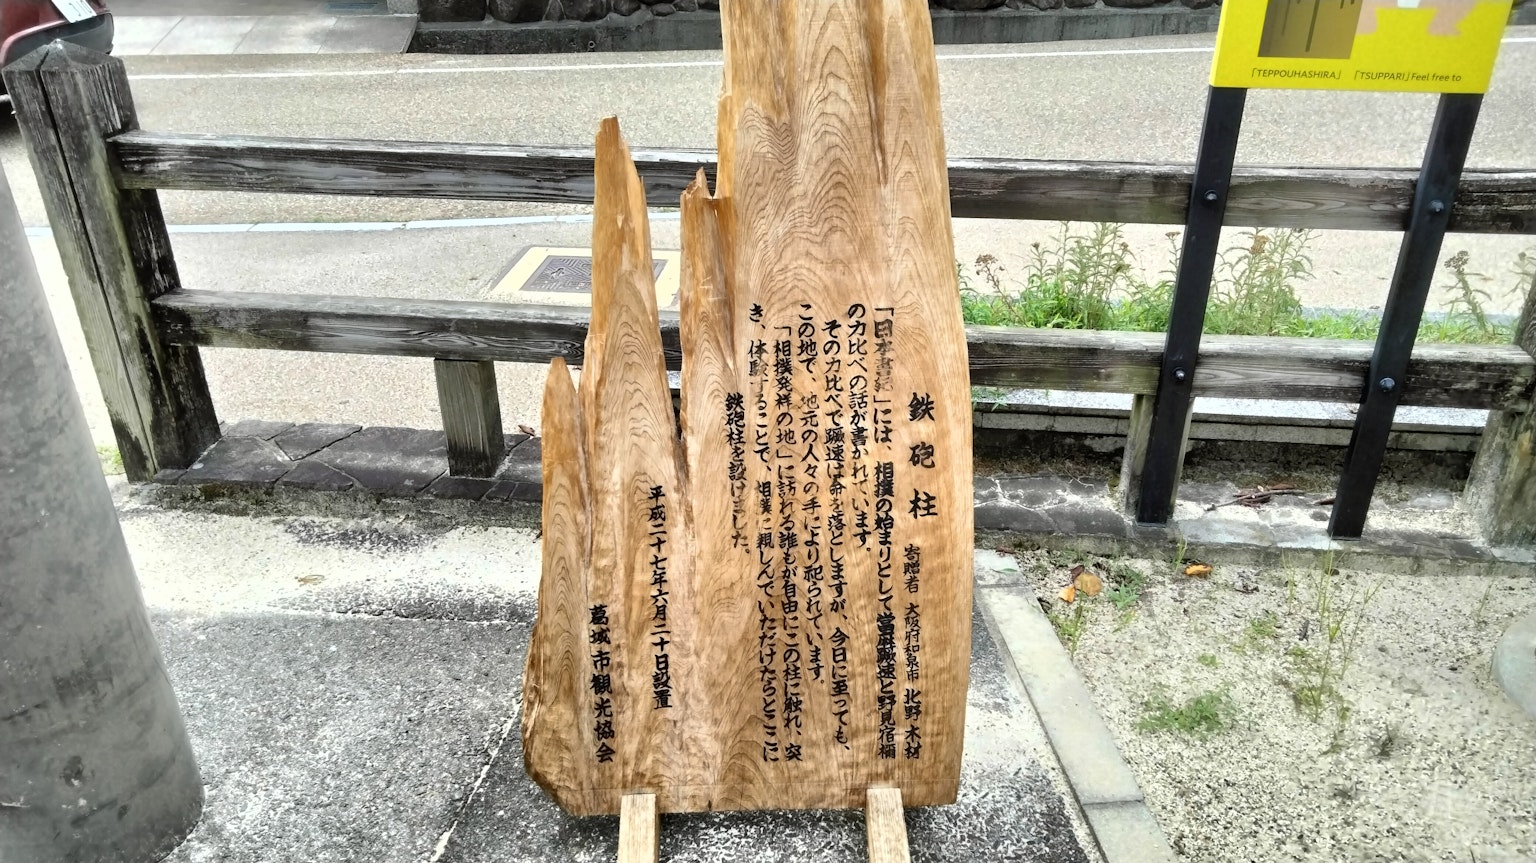 鉄砲柱 寄贈者 大阪府和泉市 北野木材
「日本書紀」には、相撲の始まりとして當麻蹶速と野見宿禰
の力比べの話が書かれています。
その力比べで蹶速は命を落としますが、今日に至っても、
この地で、地元の人々の手により祀られています。
「相撲発祥の地」に訪れる誰もが自由にこの柱に触れ、突
き、体験することで、相撲に親しんでいただけたらとここに
鉄砲柱を設けました。
平成二十七年六月二十日設置
葛城市観光協会
「TEPPOUHASHIRA」 「TSUPPARI」Feel free to